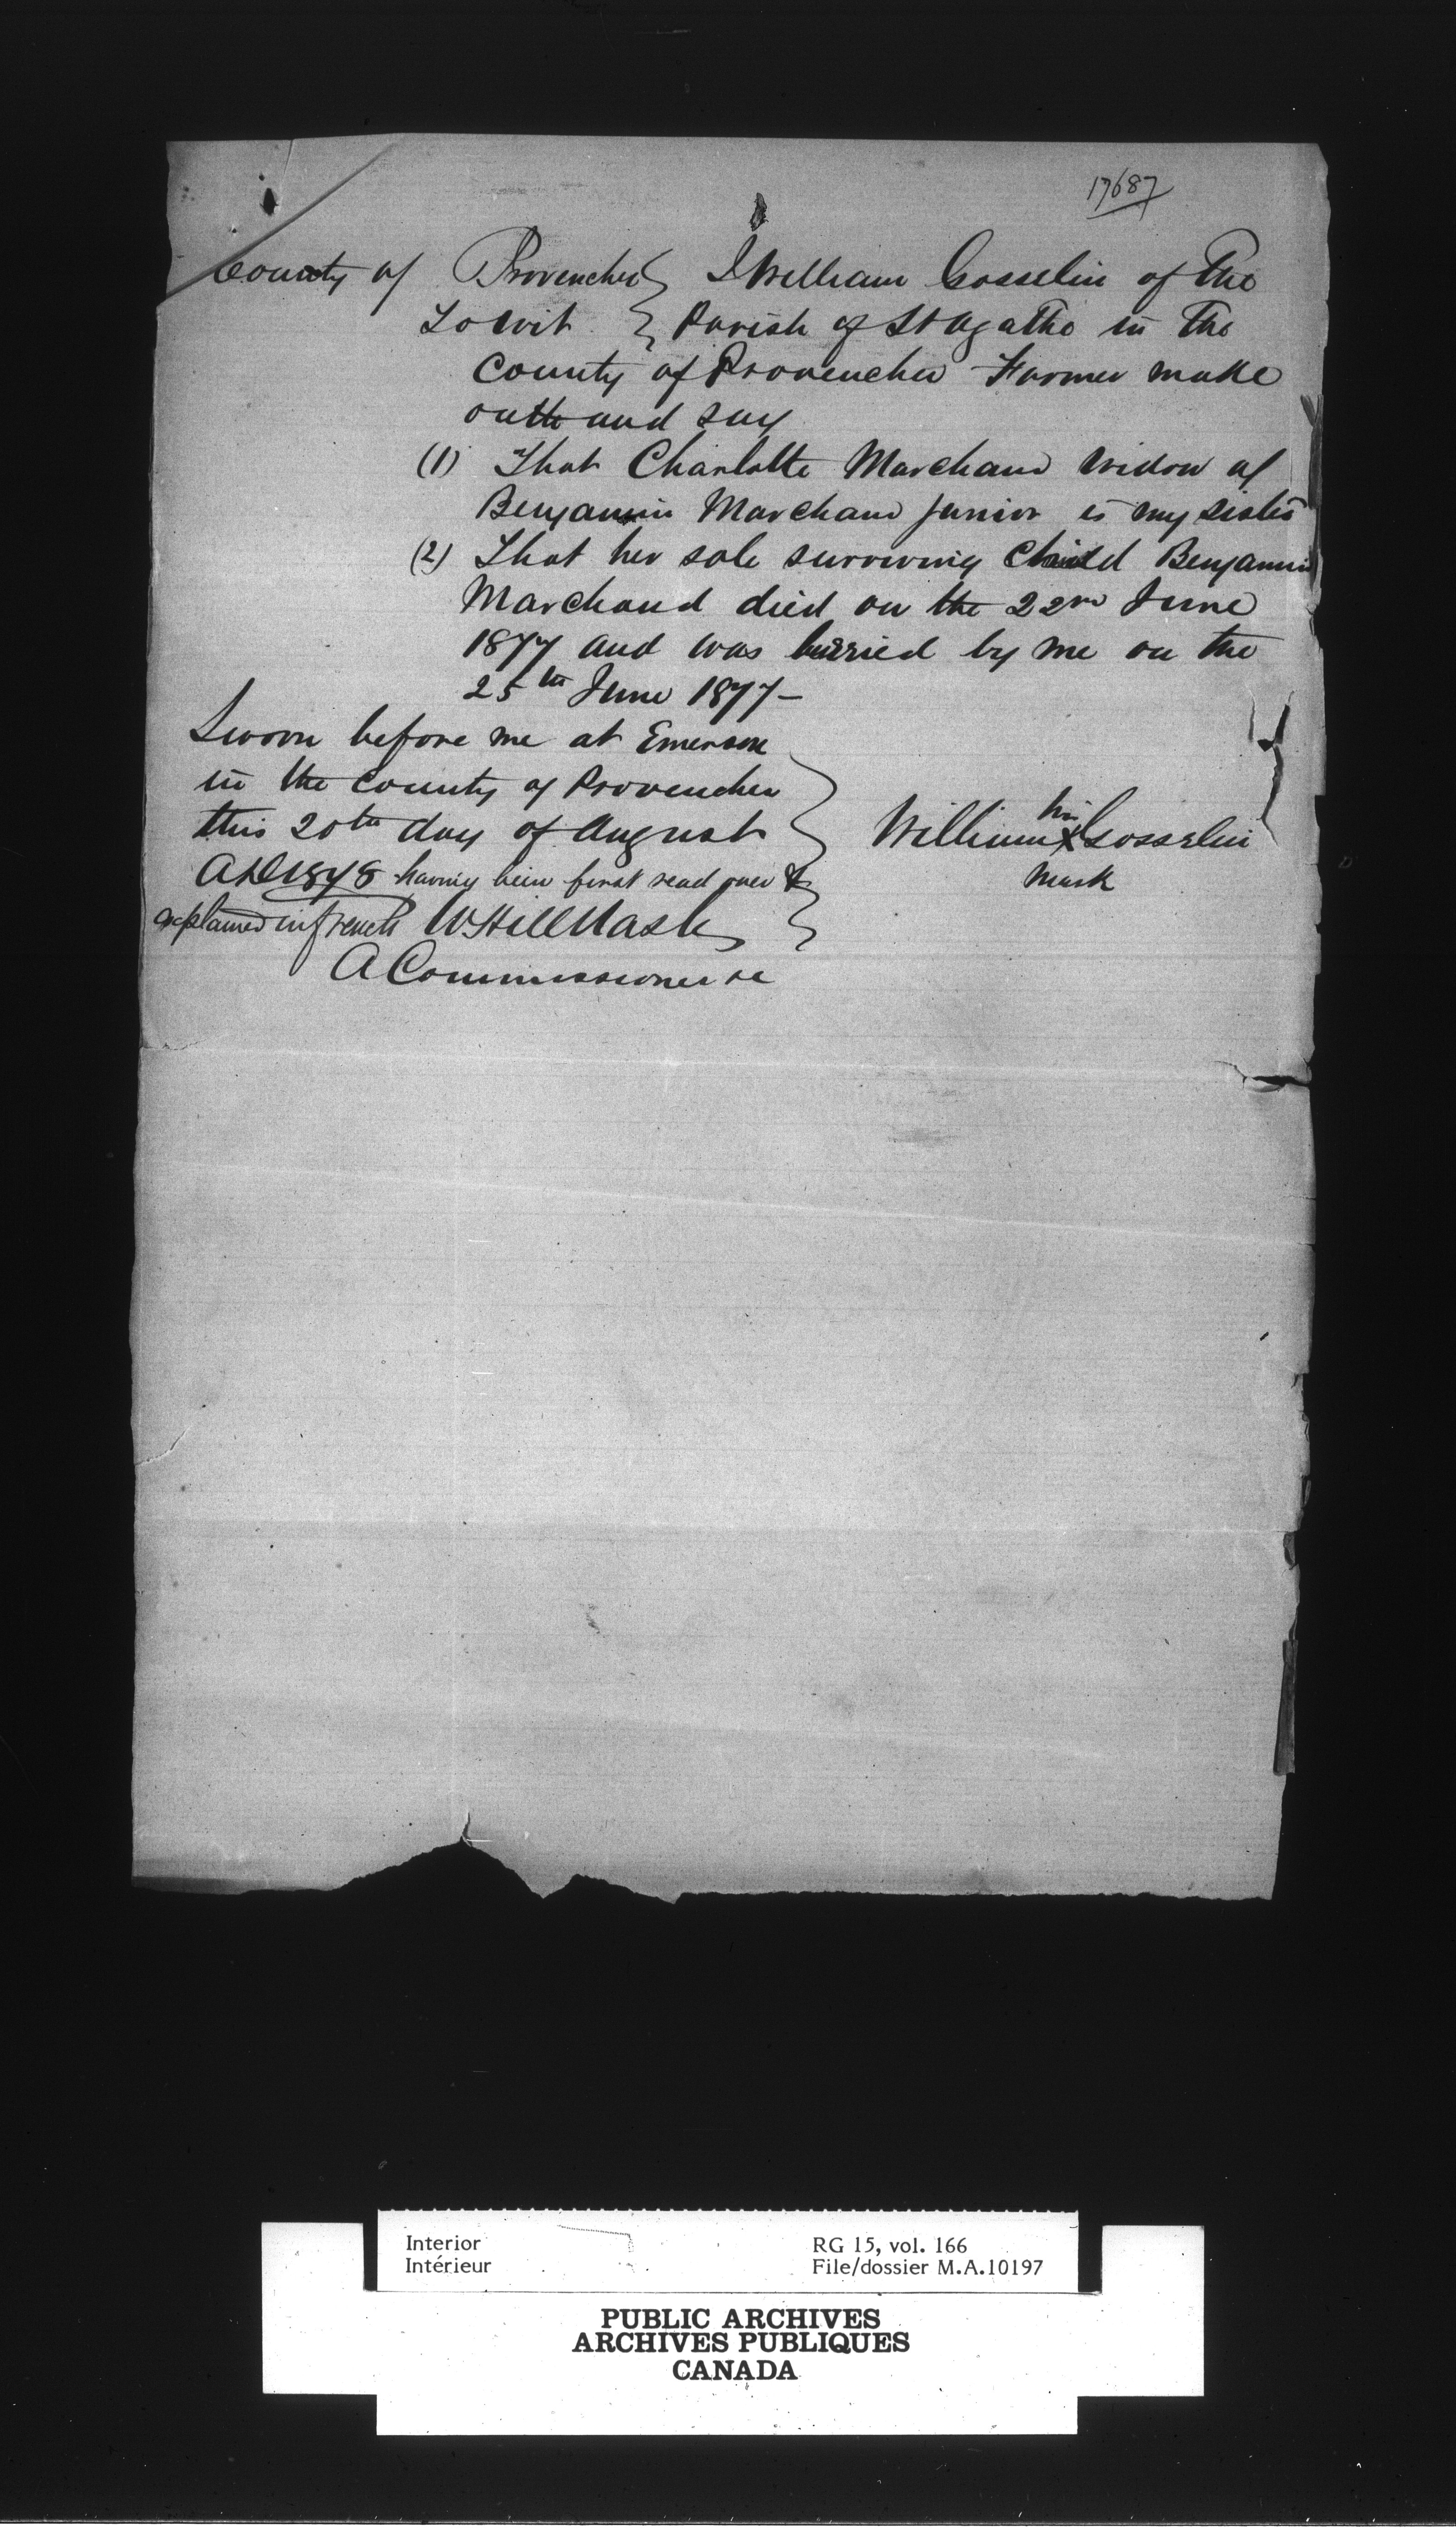 17687
County of Provencher } I William Gosselin of the
To wit } Parish of St Agathe in the
County of Provencher Farmer make
oath and say
(1) That Charlotte Marchand widow of
Benjamin Marchand junior is my sister
(2) That her sole surviving child Benjamin
Marchand died on the 22nd June
1877 and was burried by me on the
25th June 1877 —
Sworn before me at Emerson
in the County of Provencher
this 20th day of August
AD 1878 having been first read over &
explained in french W Hill Nash
A Commissioner &c
his
William X Gosselin
Mark
Interior
Intérieur
RG 15, vol. 166
File/dossier M.A.10197
PUBLIC ARCHIVES
ARCHIVES PUBLIQUES
CANADA